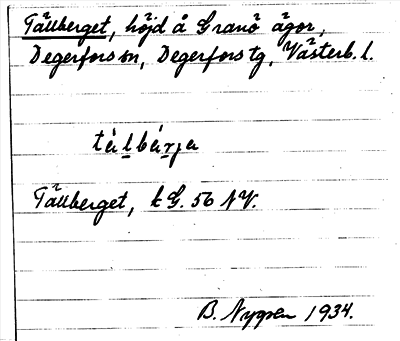 Tällberget, höjd å Granö ägor,
Degerfors sn, Degerfors tg, Västerb. l.
tälbärja
Tällberget, k G. 56 NV.
B. Nygren 1934.